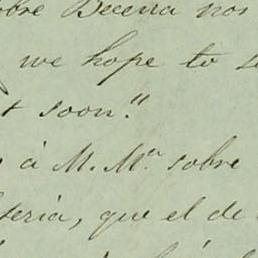 sobre Becerra nos
we hope to
soon."
á M. Mª sobre
seria, que el de